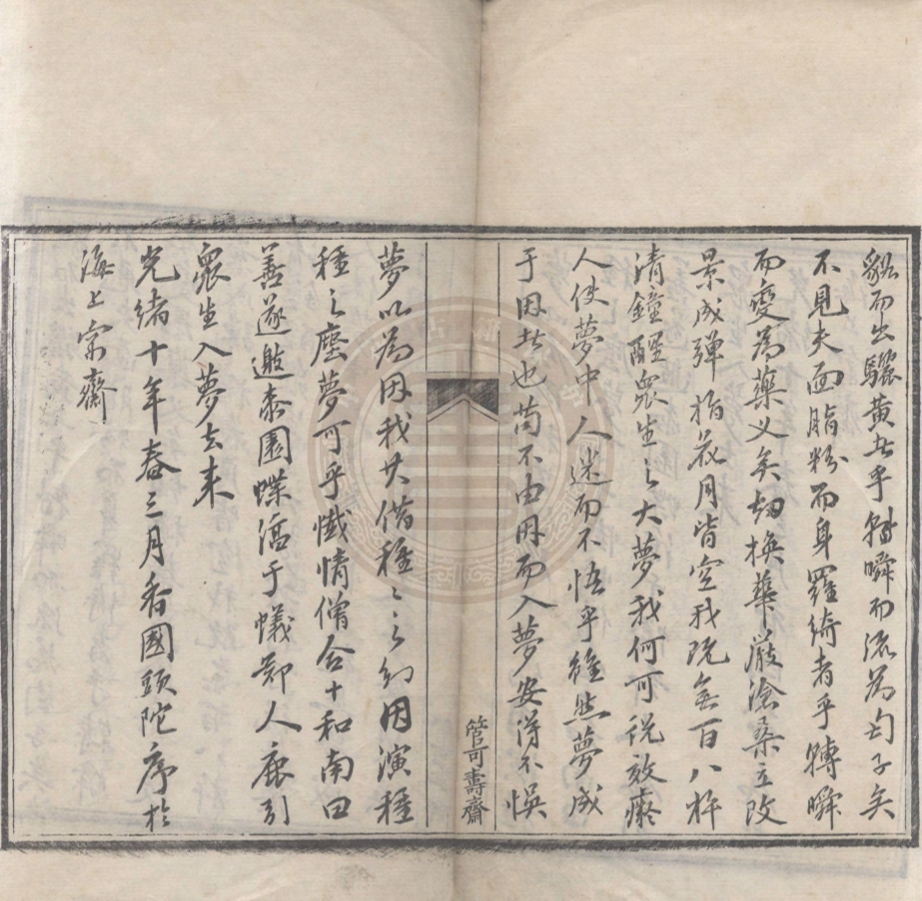 貂而出驪黃者乎轉瞬而流為匄子矣
不見夫面脂粉而身羅綺者乎轉瞬
而變為藥义矣刧換華嚴滄桑立改
景成彈指花月皆空我既無百八杵
清鐘醒衆生之大夢我何可說效癡
人使夢中人迷而不悟乎雖然夢成
于因者也苟不由因而入夢安得不悞
夢以為因我其借種〻之幻因演種
種之塵夢可乎懺情僧合十和南曰
善遂邀泰園蝶漘于蟻鄭人鹿引
衆生入夢去来
光緒十年春三月香國頭陀序於
海上宗齋
管可壽齋